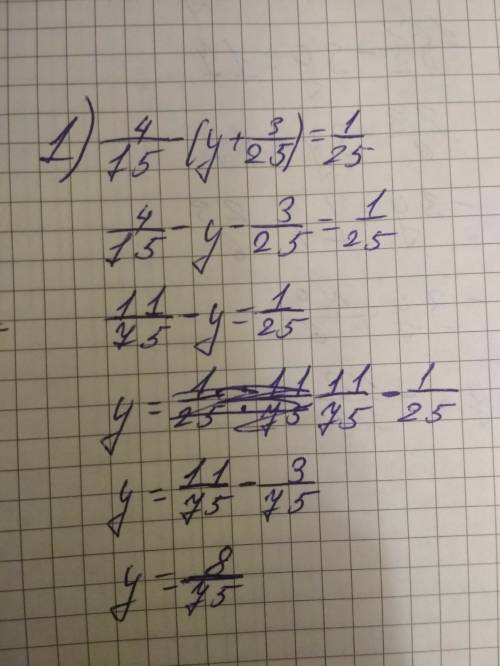 1) 4/15 - (y + 3/25) = 1/25
4/15 - y - 3/25 = 1/25
11/75 - y = 1/25
y = 11/75 - 1/25
y = 11/75 - 3/75
y = 8/75